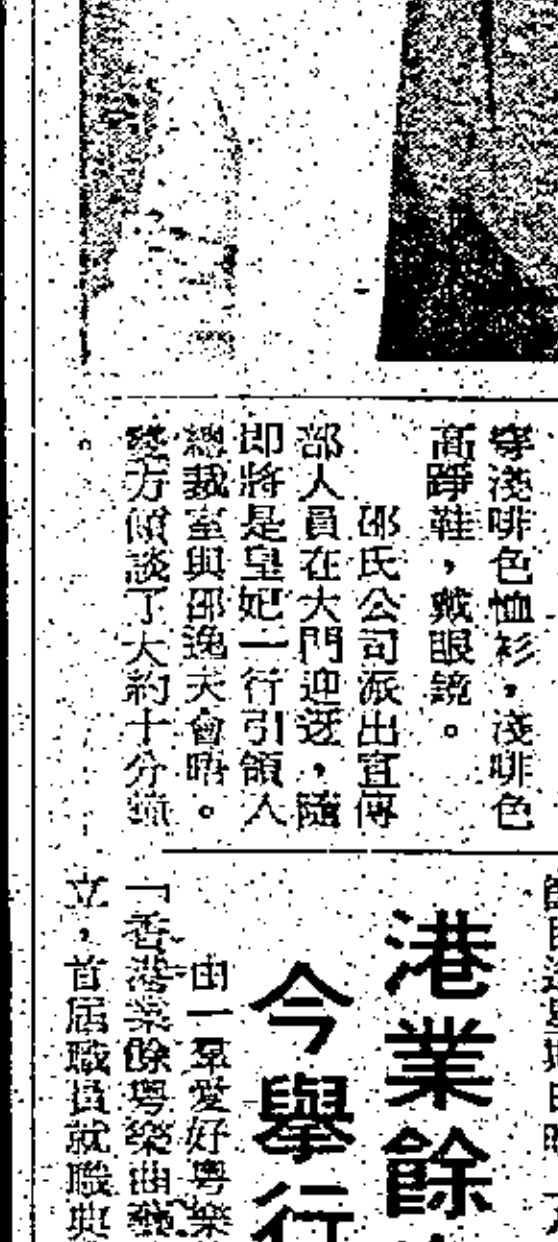 穿淺啡色恤衫,淺啡色
高踭鞋,戴眼鏡。
邵氏公司派出宣傳
部人員在大門迎迓,隨
即將是皇妃一行引領入
總裁室與邵逸夫會晤。
雙方傾談了大約十分鐘
。
港業餘
今舉行
由一羣愛好粵樂
「香港業餘粵樂曲藝
立,首屆職員就職典